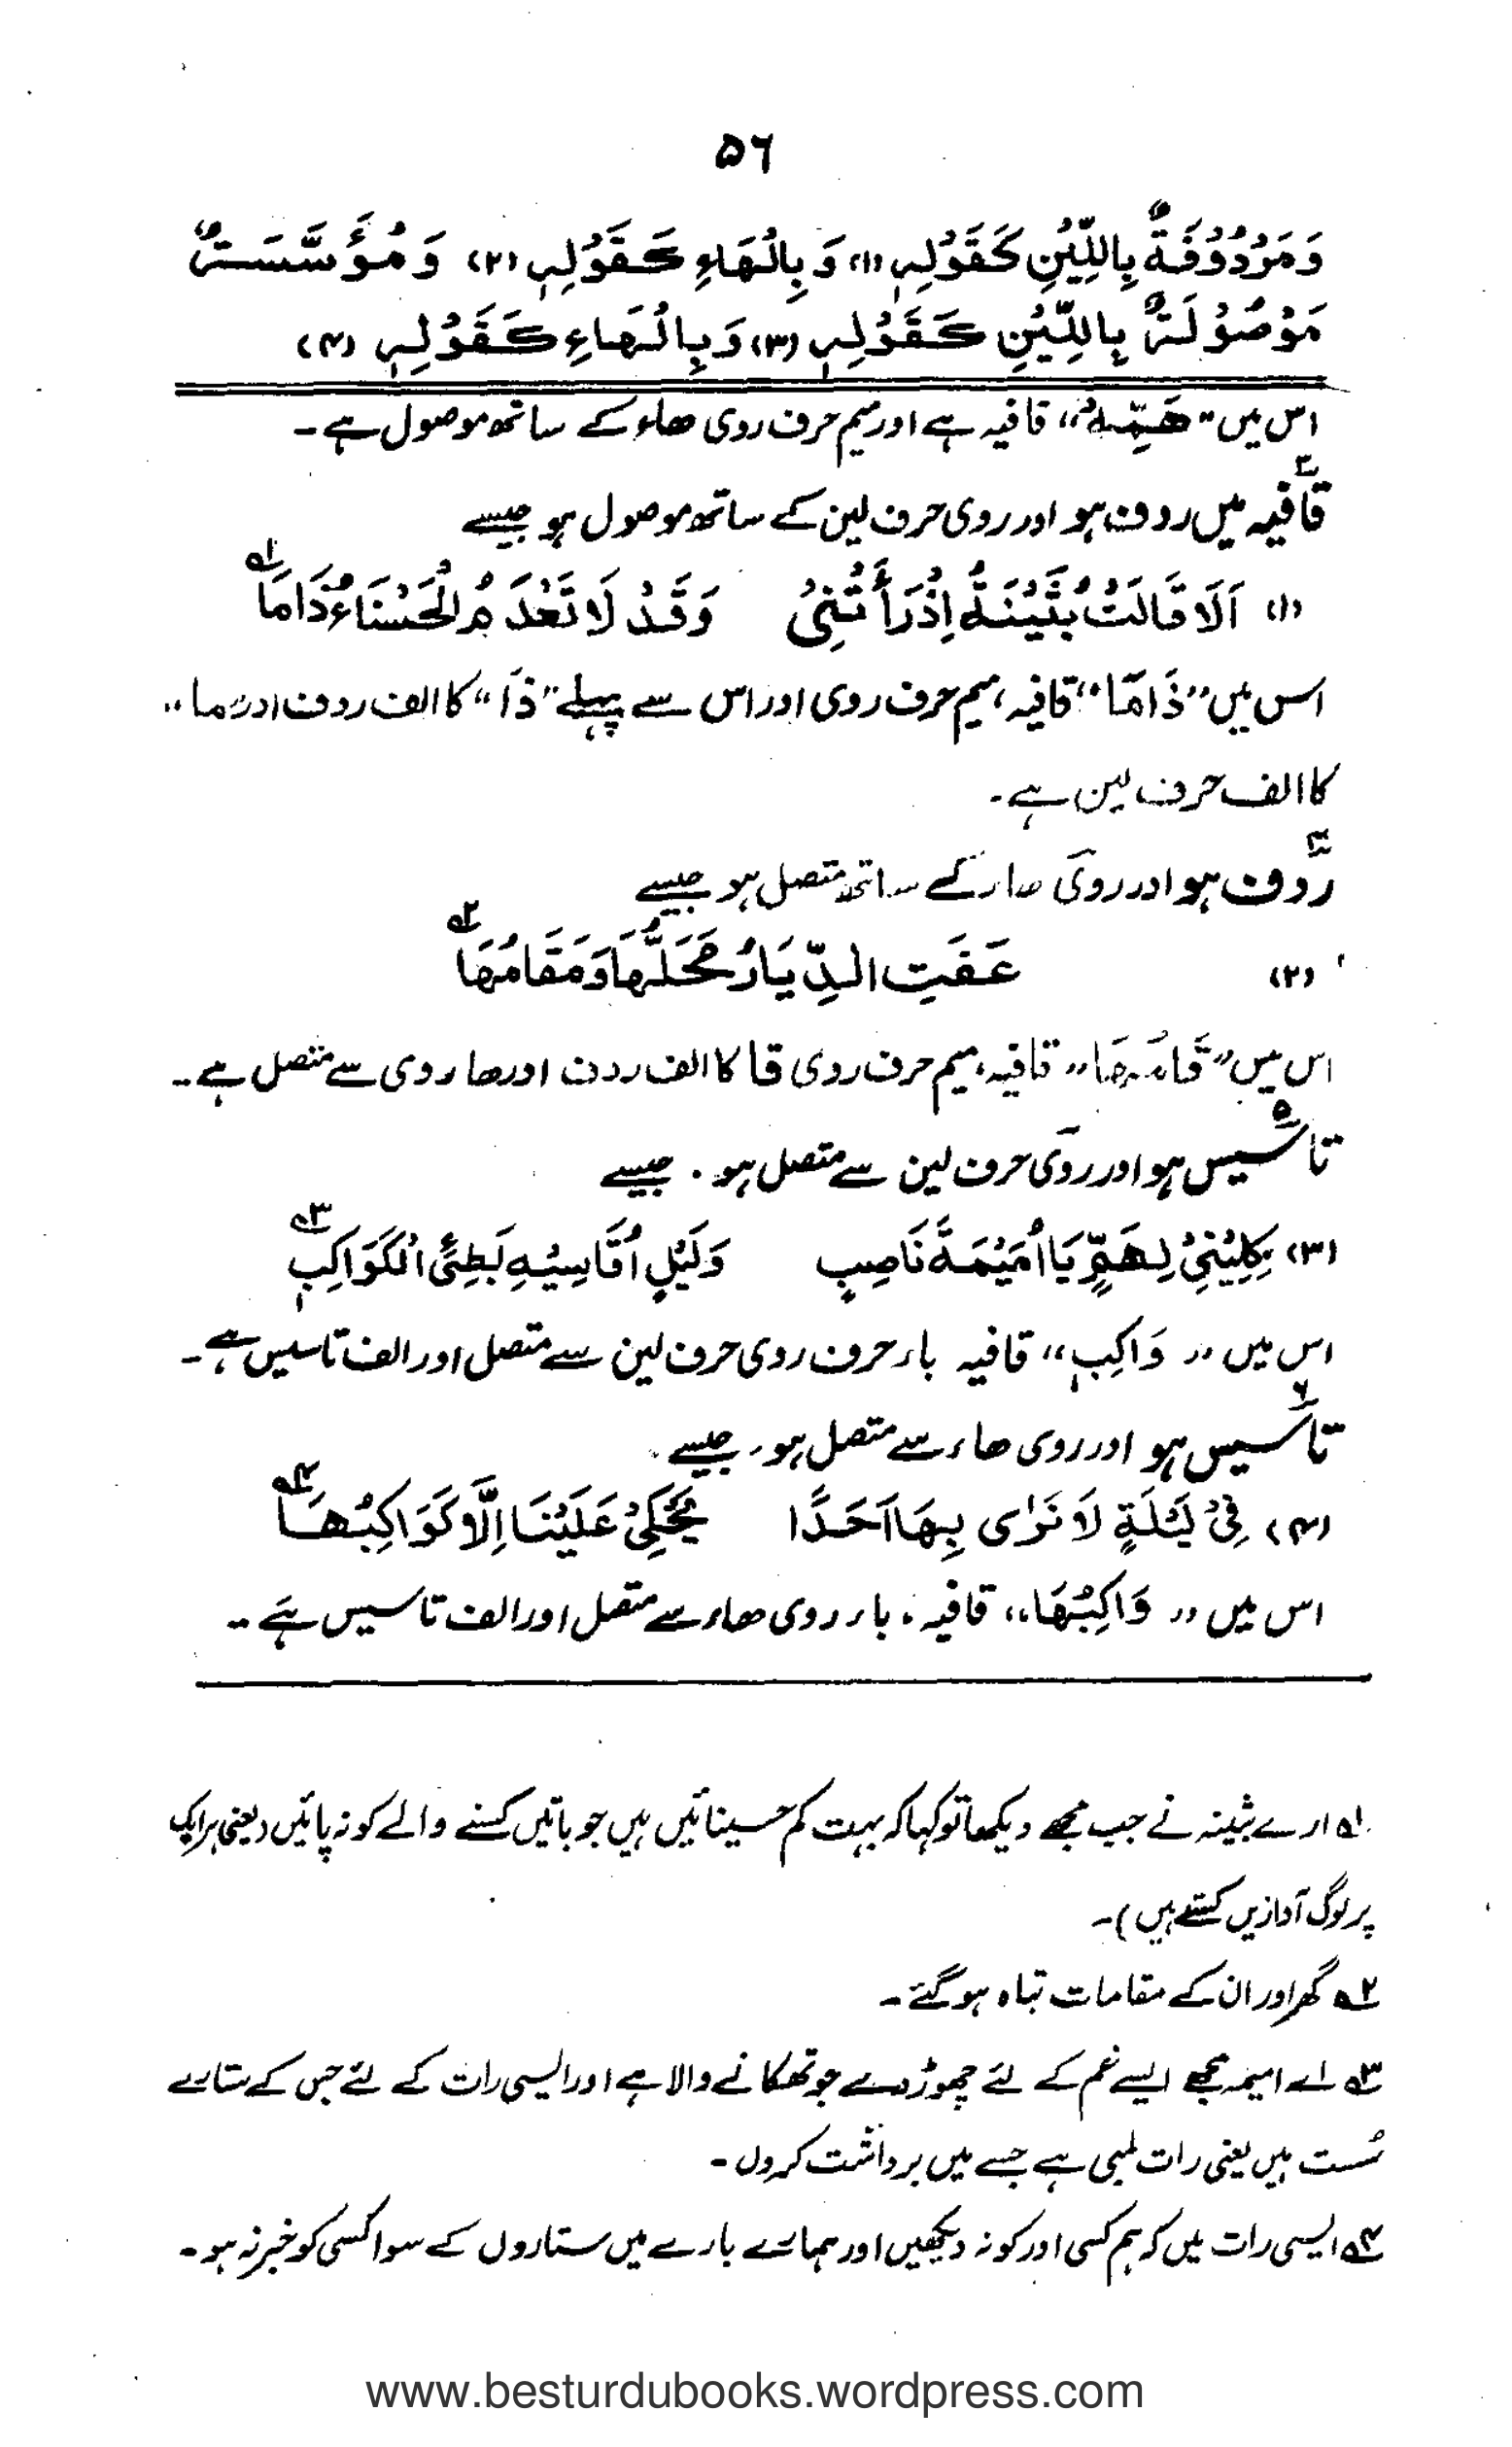 ۵۶
وَمَرْدُوْفَةٌ بِاللِّيْنِ كَقَوْلِهٖ (۱) وَبِالْهَاءِ كَقَوْلِهٖ (۲) وَمُؤَسَّسَةٌ
مَوْصُوْلَةٌ بِاللِّيْنِ كَقَوْلِهٖ (۳) وَبِالْهَاءِ كَقَوْلِهٖ (۴)
اس میں "هَمِّهٗ" قافیہ ہے اور میم حرف روی ھاء کے ساتھ موصول ہے۔
۳
قافیہ میں ردف ہو اور روی حرف لین کے ساتھ موصول ہو جیسے
(۱) اَلَا قَالَتْ بُثَيْنَةُ اِذْ رَأَتْنِیْ وَقَدْ لَا تَعْدَمُ الْحَسْنَاءُ ذَامَا ۱ھ
اس میں "ذَامَا" قافیہ، میم حرف روی اور اس سے پہلے "ذَا" کا الف ردف اور "ما"
کا الف حرف لین ہے۔
۴
ردف ہو اور روی ھاء کے ساتھ متصل ہو جیسے
(۲) عَفَتِ الدِّيَارُ مَحَلُّهَا وَمَقَامُهَا ۲ھ
اس میں "قَامُهَا" قافیہ، میم حرف روی قا کا الف ردف اور ھا روی سے متصل ہے۔
۵
تاسیس ہو اور روی حرف لین سے متصل ہو۔ جیسے
(۳) كِلِيْنِیْ لِهَمٍّ يَا اُمَيْمَةَ نَاصِبٍ وَلَيْلٍ اُقَاسِيْهِ بَطِیْءِ الْكَوَاكِبٖ ۳ھ
اس میں "وَاكِبٖ" قافیہ باء حرف روی حرف لین سے متصل اور الف تاسیس ہے۔
۶
تاسیس ہو اور روی ھاء سے متصل ہو، جیسے
(۴) فِیْ لَيْلَةٍ لَا نَرٰى بِهَا اَحَدًا يَحْكِیْ عَلَيْنَا اِلَّا كَوَاكِبُهَا ۴ھ
اس میں "وَاكِبُهَا" قافیہ، باء روی ھاء سے متصل اور الف تاسیس ہے۔
۱ھ ارے بثینہ نے جب مجھے دیکھا تو کہا کہ بہت کم حسینائیں ہیں جو باتیں کسنے والے کو نہ پائیں (یعنی ہر ایک
پر لوگ آوازیں کستے ہیں)۔
۲ھ گھر اور ان کے مقامات تباہ ہو گئے۔
۳ھ اے امیمہ مجھے ایسے غم کے لئے چھوڑ دے جو تھکانے والا ہے اور ایسی رات کے لئے جس کے ستارے
سُست ہیں یعنی رات لمبی ہے جسے میں برداشت کروں۔
۴ھ ایسی رات میں کہ ہم کسی اور کو نہ دیکھیں اور ہمارے بارے میں ستاروں کے سوا کسی کو خبر نہ ہو۔
www.besturdubooks.wordpress.com